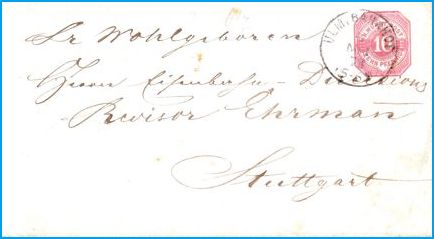 Sr Wohlgeboren
Herrn Eisenbahn-Direktions
Revisor Ehrmañ
Stuttgart
ULM. BAHNHOF
10
ZEHN PFENNIG